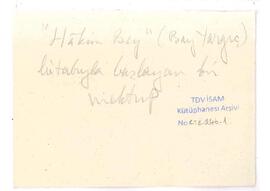 "Hâkim Bey" (Bay Yargıç)
hitabıyla başlayan bir
mektup
TDV İSAM
Kütüphanesi Arşivi
No